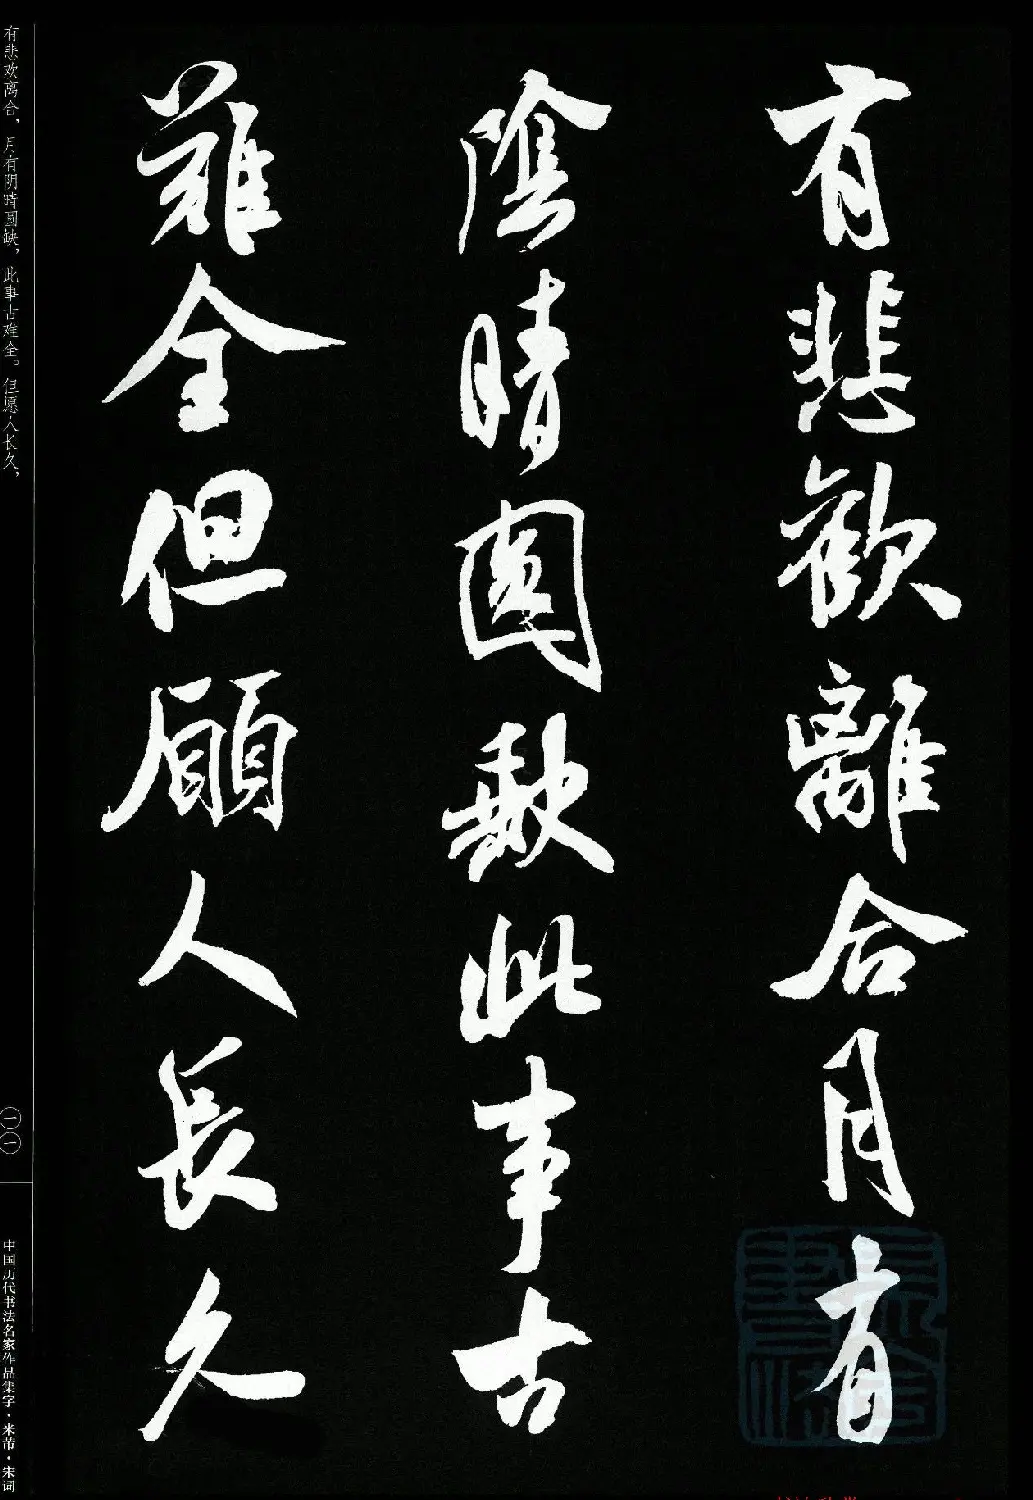 有悲歡離合月有
陰晴圓缺此事古
難全但願人長久
有悲欢离合，月有阴晴圆缺，此事古难全。但愿人长久，
一一
中国历代书法名家作品集字·米芾·宋词